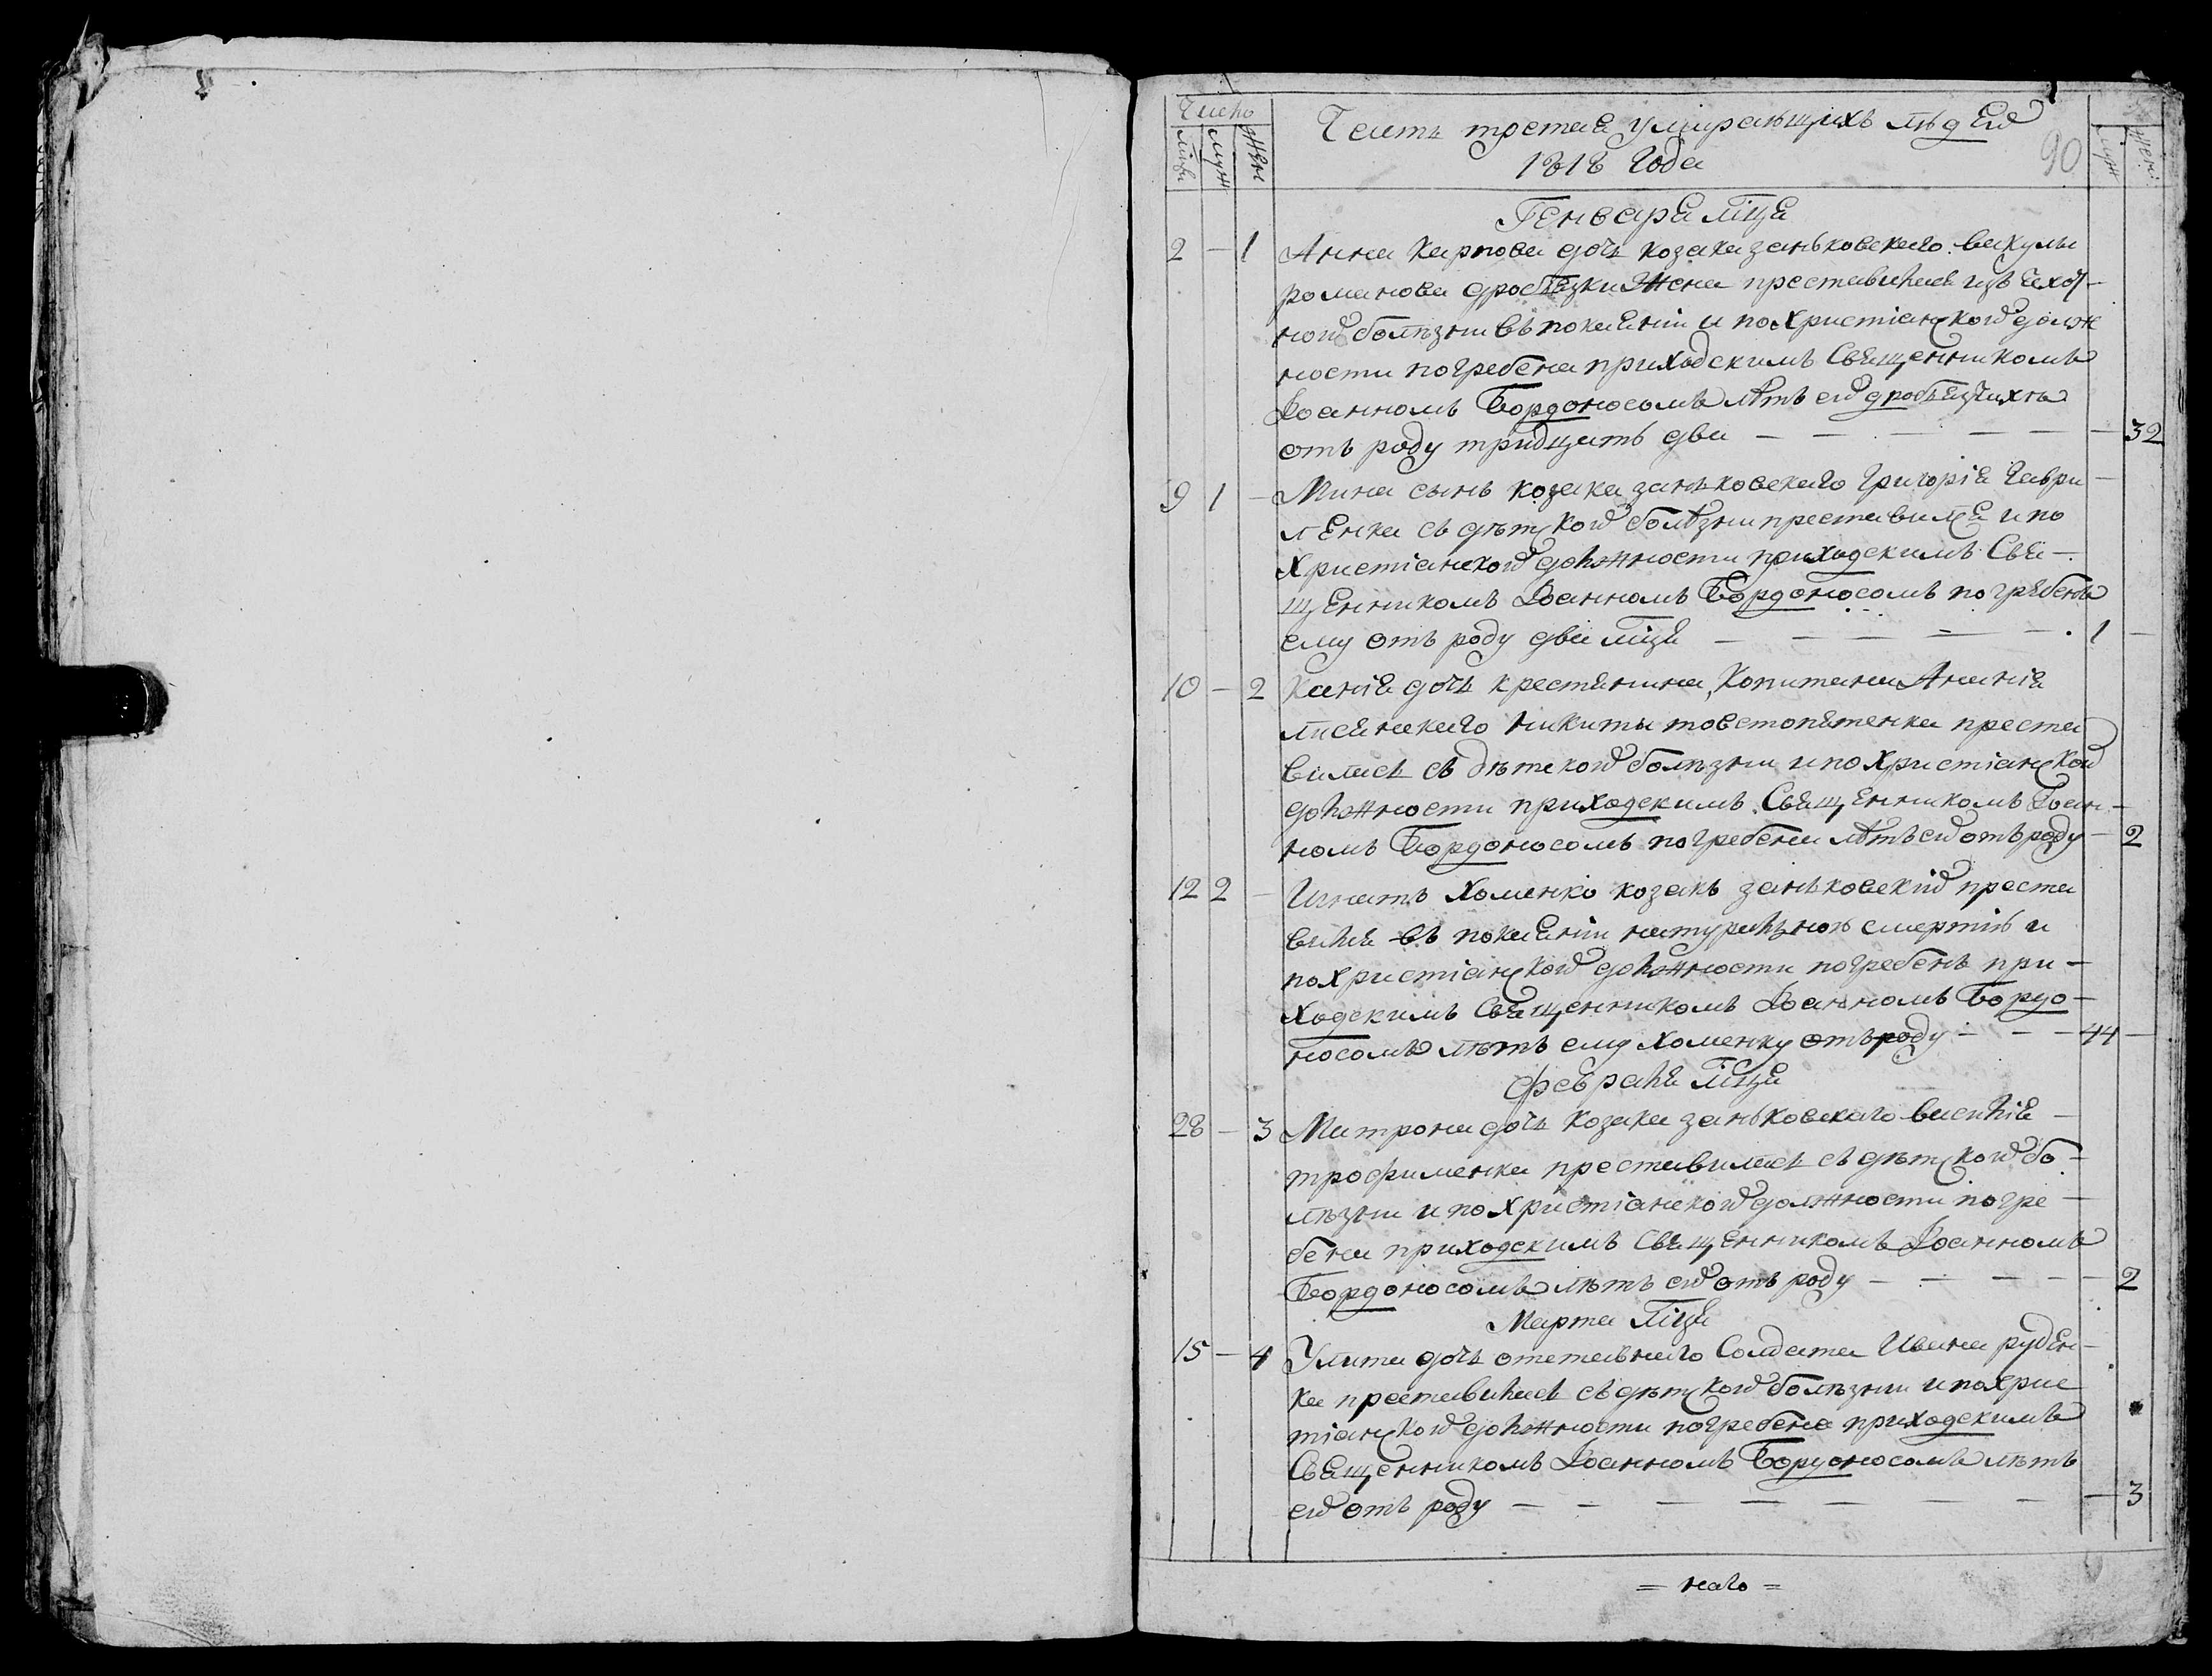 Число
мцви
муж
жен
Часть третая умиравщихъ людей
1818 Года
90
муж
жен:
Генваря мца
2 — 1 Анна Карпова дочь козака заньковского вакулы
романова дробязки Жена преставиласъ изъ чахот-
ной болѣзни въ покаяніи и по христіанской долж
ности погребена приходскимъ Священникомъ
Іоанномъ Бордоносомъ лѣтъ ей дробязчихѣ
отъ роду тридцать два — — — — — — 32
9 1 — Мина сынъ козака заньковского григорія гаври-
ленка съ дѣтской болѣзни преставился и по
Христіанской должности приходскимъ Свя-
щенникомъ Іоанномъ Бордоносомъ погребенъ
ему отъ роду два мца — — — — — 1 —
10 — 2 дочь крестянина, Капитана Ананія
никиты товстопятенка преста
виласъ съ дѣтской болѣзни и по христіанской
должности приходскимъ Священникомъ Іоан-
номъ Бордоносомъ погребена лѣтъ ей отъ роду — 2
12 2 — Игнатъ Хоменко козакъ заньковскій преста
вился въ покаяніи натуральною смертію и
по христіанской должности погребенъ при-
ходскимъ Священникомъ Іоанномъ Бордо-
носомъ лѣтъ ему хоменку отъ роду — — — 44 —
февраля Мца
28 — 3 Матрона дочь козака заньковского василія —
трофименка преставиласъ съ дѣтской бо-
лѣзни и по христіанской должности погре-
бена приходскимъ Священникомъ Іоанномъ
Бордоносомъ лѣтъ ей отъ роду — — — — — 2
Марта Мца
15 — 4 Улита дочь отставного Солдата Ивана руден-
ка преставиласъ съ дѣтской болѣзни и по хрис
тіанской должности погребена приходскимъ
Священникомъ Іоанномъ Бордоносомъ лѣтъ
ей отъ роду — — — — — — — — 3
= =